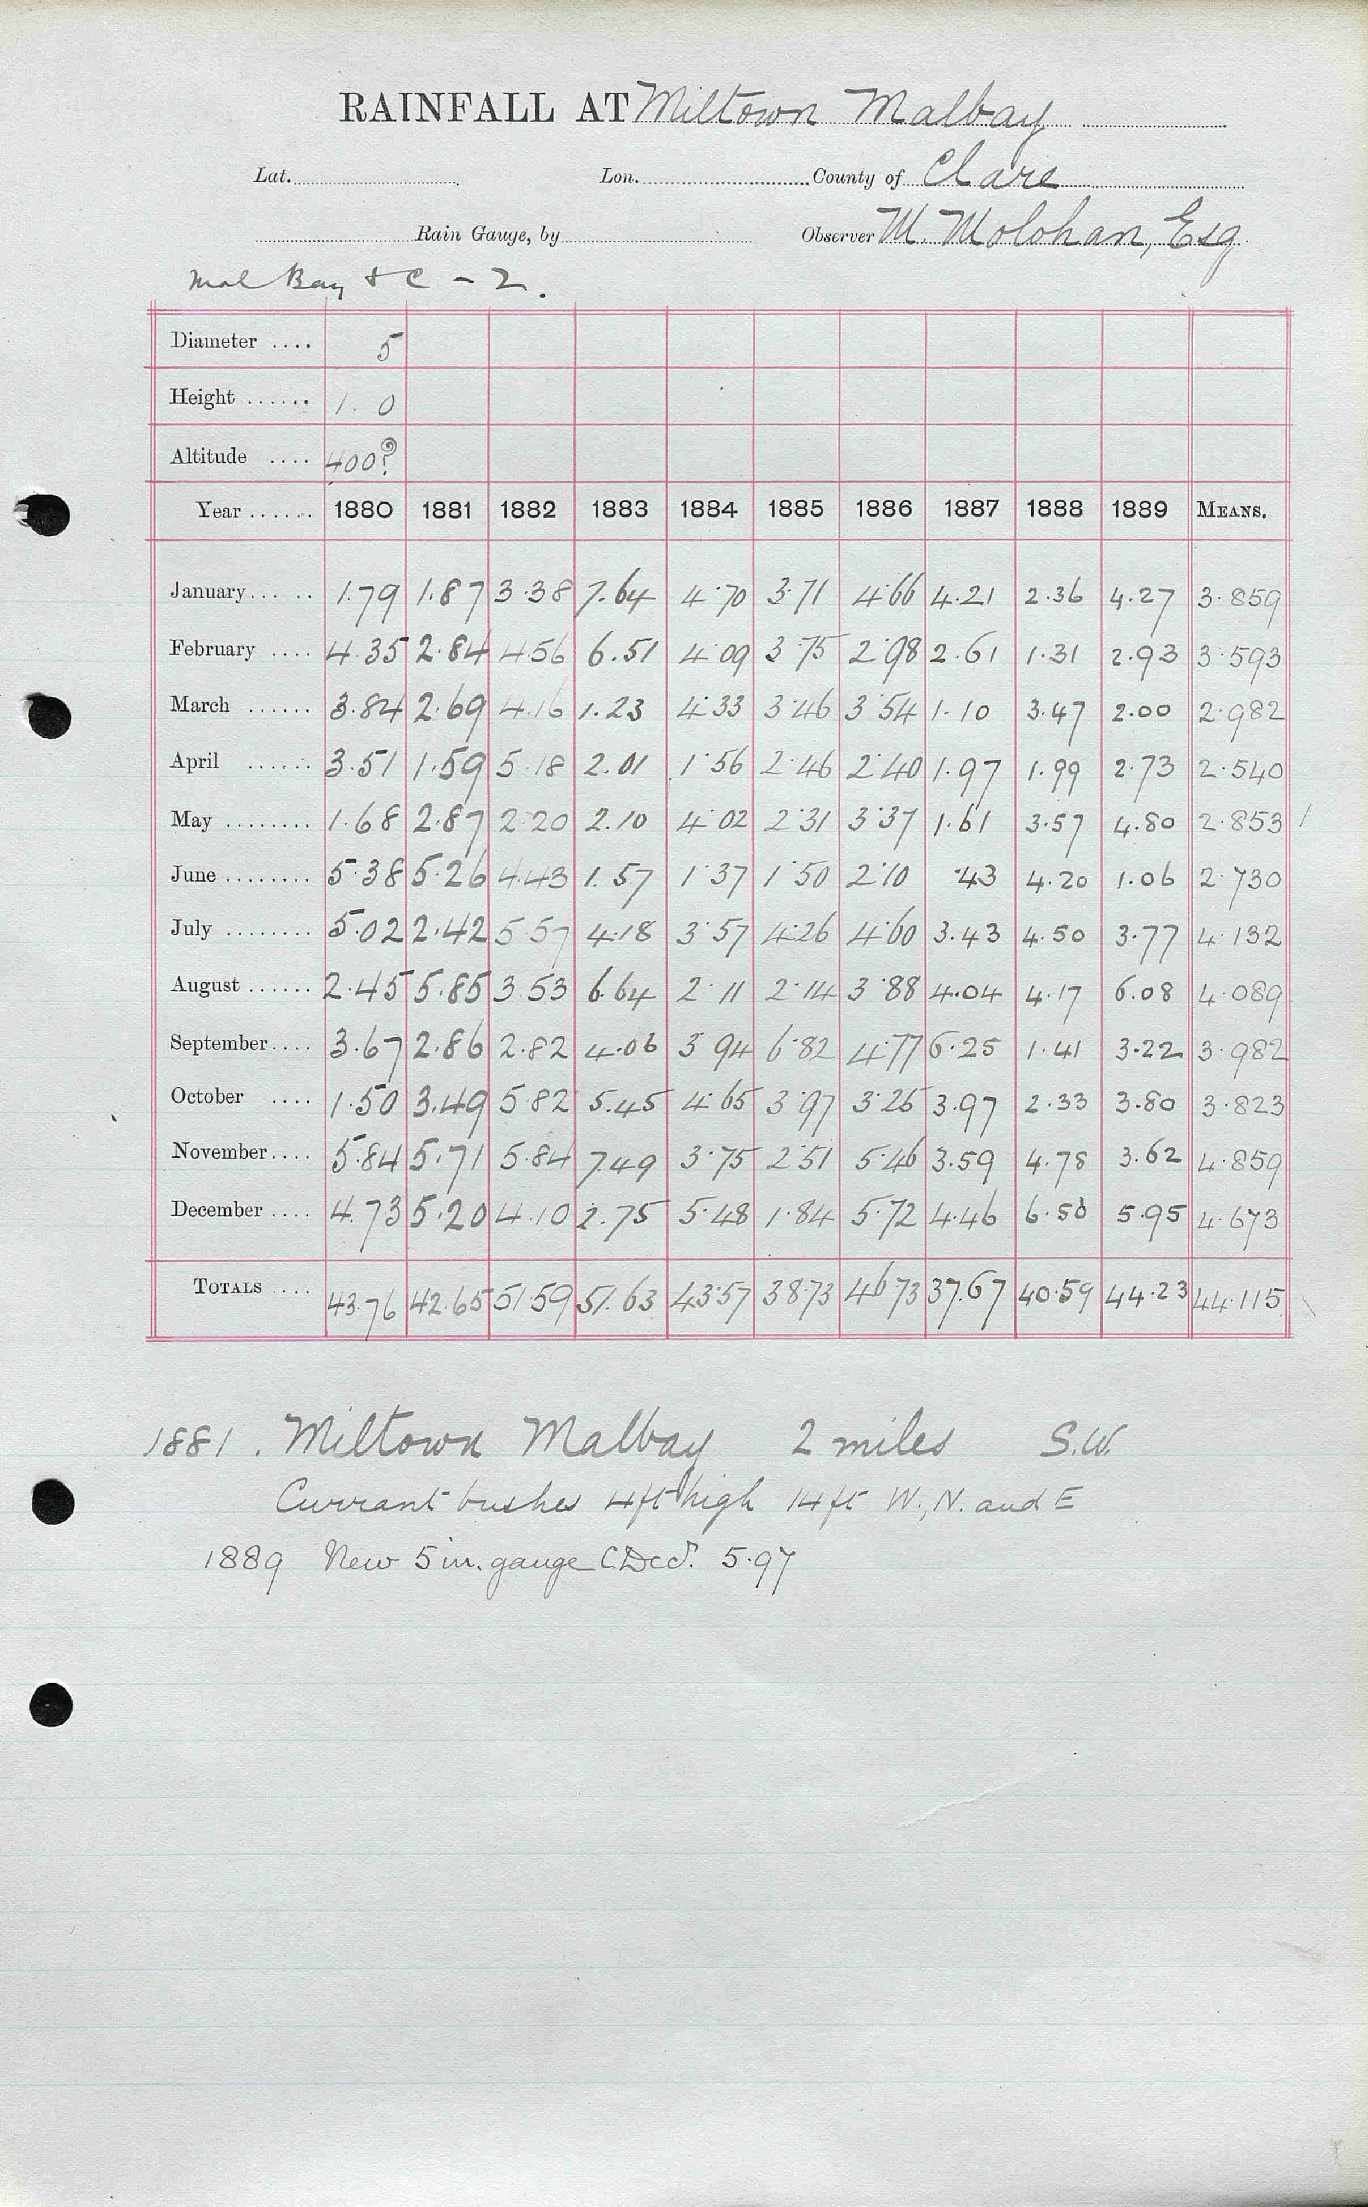 RAINFALL AT Miltown Malbay
Lat. Lon. County of Clare
Rain Gauge, by Observer M. Molohan, Esq
Mal Bay & C - 2.
Diameter .... 5
Height ...... 1. 0
Altitude .... 400?
Year ...... 1880 1881 1882 1883 1884 1885 1886 1887 1888 1889 MEANS.
January ...... 1.79 1.87 3.38 7.64 4.70 3.71 4.66 4.21 2.36 4.27 3.859
February .... 4.35 2.84 4.56 6.51 4.09 3.75 2.98 2.61 1.31 2.93 3.593
March ...... 3.84 2.69 4.16 1.23 4.33 3.46 3.54 1.10 3.47 2.00 2.982
April ...... 3.51 1.59 5.18 2.01 1.56 2.46 2.40 1.97 1.99 2.73 2.540
May ........ 1.68 2.87 2.20 2.10 4.02 2.31 3.37 1.61 3.57 4.80 2.853
June ........ 5.38 5.26 4.43 1.57 1.37 1.50 2.10 .43 4.20 1.06 2.730
July ........ 5.02 2.42 5.57 4.18 3.57 4.26 4.60 3.43 4.50 3.77 4.132
August ...... 2.45 5.85 3.53 6.64 2.11 2.14 3.88 4.04 4.17 6.08 4.089
September .... 3.67 2.86 2.82 4.06 3.94 6.82 4.77 6.25 1.41 3.22 3.982
October .... 1.50 3.49 5.82 5.45 4.65 3.97 3.25 3.97 2.33 3.80 3.823
November .... 5.84 5.71 5.84 7.49 3.75 2.51 5.46 3.59 4.78 3.62 4.859
December .... 4.73 5.20 4.10 2.75 5.48 1.84 5.72 4.46 6.50 5.95 4.673
TOTALS .... 43.76 42.65 51.59 51.63 43.57 38.73 46.73 37.67 40.59 44.23 44.115
1881. Miltown Malbay 2 miles S.W.
Currant bushes 4ft high 14ft W., N. and E
1889 New 5 in. gauge C. Decd. 5.97